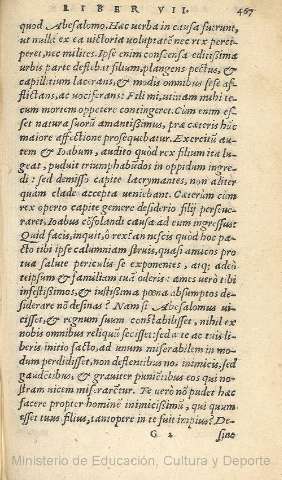 LIBER VII. 467
quod Absalomo. Hæc verba in causa fuerunt,
ut nulla ex ea victoria voluptatē nec rex perci-
peret, nec milites. Ipse enim conscensa editissima
urbis parte deflebat filium, plangens pectus, &
capillitium lacerans, & modis omnibus sese af-
flictans, ac vociferans: Fili mi, utinam mihi te-
cum mortem oppetere contingeret. Cùm enim es-
set natura suorū amantissimus, præ cæteris hūc
maiore affectione prosequebatur. Exercitus au-
tem & Ioabum, audito quòd rex filium ita lu-
geat, puduit triumphabūdos in oppidum ingre-
di: sed demisso capite lacrymantes, non aliter
quàm clade accepta veniebant. Cæterùm cùm
rex operto capite gemere desiderio filij perseue-
raret, Ioabus cōsolandi causa ad eum ingressus:
Quid facis, inquit, ô rex? an nescis quòd hoc pa-
cto tibi ipse calumniam struis, quasi amicos pro
tua salute periculis se exponentes, atq; adeò
teipsum & familiam tuā oderis: ames verò tibi
infestissimos, & iustissima pœna absumptos de-
siderare nō desinas? Nam si Absalomus vi-
cisset, & regnum suum constabilisset, nihil ex
nobis omnibus reliquū fecisset: sed a te ac tuis li-
beris initio facto, ad unum miserabilem in mo-
dum perdidisset, non deflentibus nos inimicis, sed
gaudentibus, & grauiter punientibus eos qui no-
stram vicem miserarētur. Te verò nō pudet hæc
facere propter hominē inimicissimū, qui quum
esset tuus filius, tantopere in te fuit impius? De-
G 2 sino
Ministerio de Educación, Cultura y Deporte